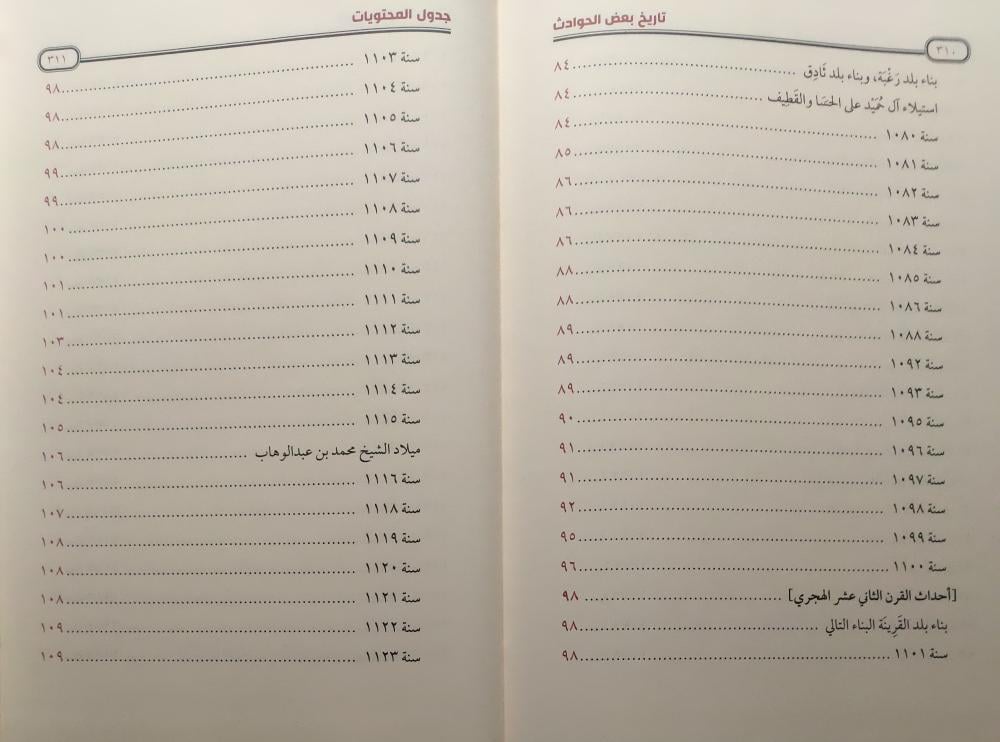 تاريخ بعض الحوادث
٣١٠
بناء بلد رَغْبَة، وبناء بلد ثَادِق ........ ٨٤
استيلاء آل حُمَيْد على الحَسَا والقَطِيف ........ ٨٤
سنة ١٠٨٠ ........ ٨٤
سنة ١٠٨١ ........ ٨٥
سنة ١٠٨٢ ........ ٨٦
سنة ١٠٨٣ ........ ٨٦
سنة ١٠٨٤ ........ ٨٦
سنة ١٠٨٥ ........ ٨٨
سنة ١٠٨٦ ........ ٨٨
سنة ١٠٨٨ ........ ٨٩
سنة ١٠٩٢ ........ ٨٩
سنة ١٠٩٣ ........ ٨٩
سنة ١٠٩٥ ........ ٩٠
سنة ١٠٩٦ ........ ٩١
سنة ١٠٩٧ ........ ٩١
سنة ١٠٩٨ ........ ٩٢
سنة ١٠٩٩ ........ ٩٥
سنة ١١٠٠ ........ ٩٦
[أحداث القرن الثاني عشر الهجري] ........ ٩٨
بناء بلد القَرِينَة البناء التالي ........ ٩٨
سنة ١١٠١ ........ ٩٨
جدول المحتويات
٣١١
سنة ١١٠٣ ........ ٩٨
سنة ١١٠٤ ........ ٩٨
سنة ١١٠٥ ........ ٩٨
سنة ١١٠٦ ........ ٩٩
سنة ١١٠٧ ........ ٩٩
سنة ١١٠٨ ........ ١٠٠
سنة ١١٠٩ ........ ١٠٠
سنة ١١١٠ ........ ١٠١
سنة ١١١١ ........ ١٠١
سنة ١١١٢ ........ ١٠٣
سنة ١١١٣ ........ ١٠٤
سنة ١١١٤ ........ ١٠٤
سنة ١١١٥ ........ ١٠٥
ميلاد الشيخ محمد بن عبدالوهاب ........ ١٠٦
سنة ١١١٦ ........ ١٠٦
سنة ١١١٨ ........ ١٠٧
سنة ١١١٩ ........ ١٠٨
سنة ١١٢٠ ........ ١٠٨
سنة ١١٢١ ........ ١٠٨
سنة ١١٢٢ ........ ١٠٩
سنة ١١٢٣ ........ ١٠٩